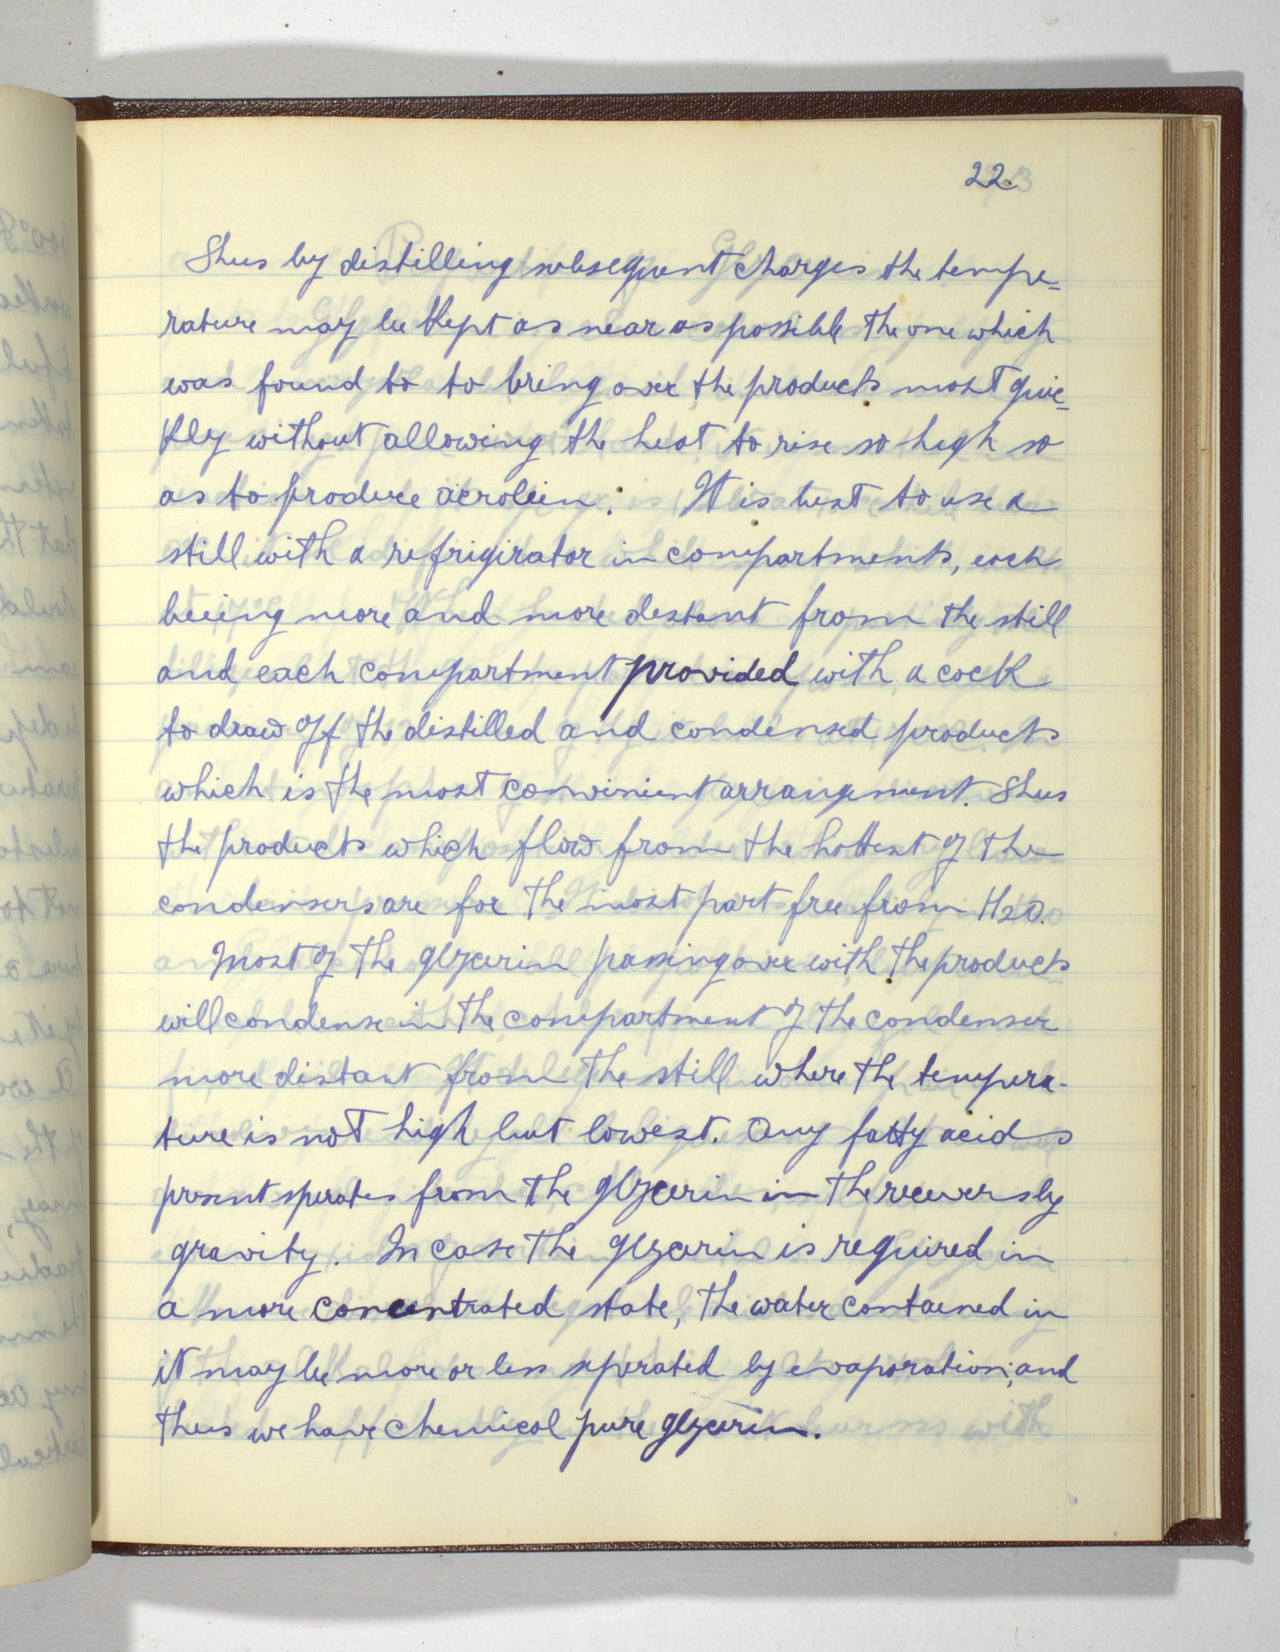 22.
Thus by distilling subsequent charges the tempe-
rature may be kept as near as possible the one which
was found to to bring over the products most quic-
kly without allowing the heat to rise so high so
as to produce acrolein. It is best to use a
still with a refrigirator in compartments, each
beeing more and more distant from the still
and each compartment provided with a cock
to draw off the distilled and condensed products
which is the most convinient arrangement. Thus
the products which flow from the hottest of the
condensers are for the most part free from H2O.
Most of the glycerin passing over with the products
will condense in the compartment of the condenser
more distant from the still where the tempera-
ture is not high but lowest. Any fatty acids
present sperates from the glycerin in the recevers by
gravity. In case the glycerin is required in
a more concentrated state, the water contained in
it may be more or less seperated by evaporation; and
thus we have chemical pure glycerin.